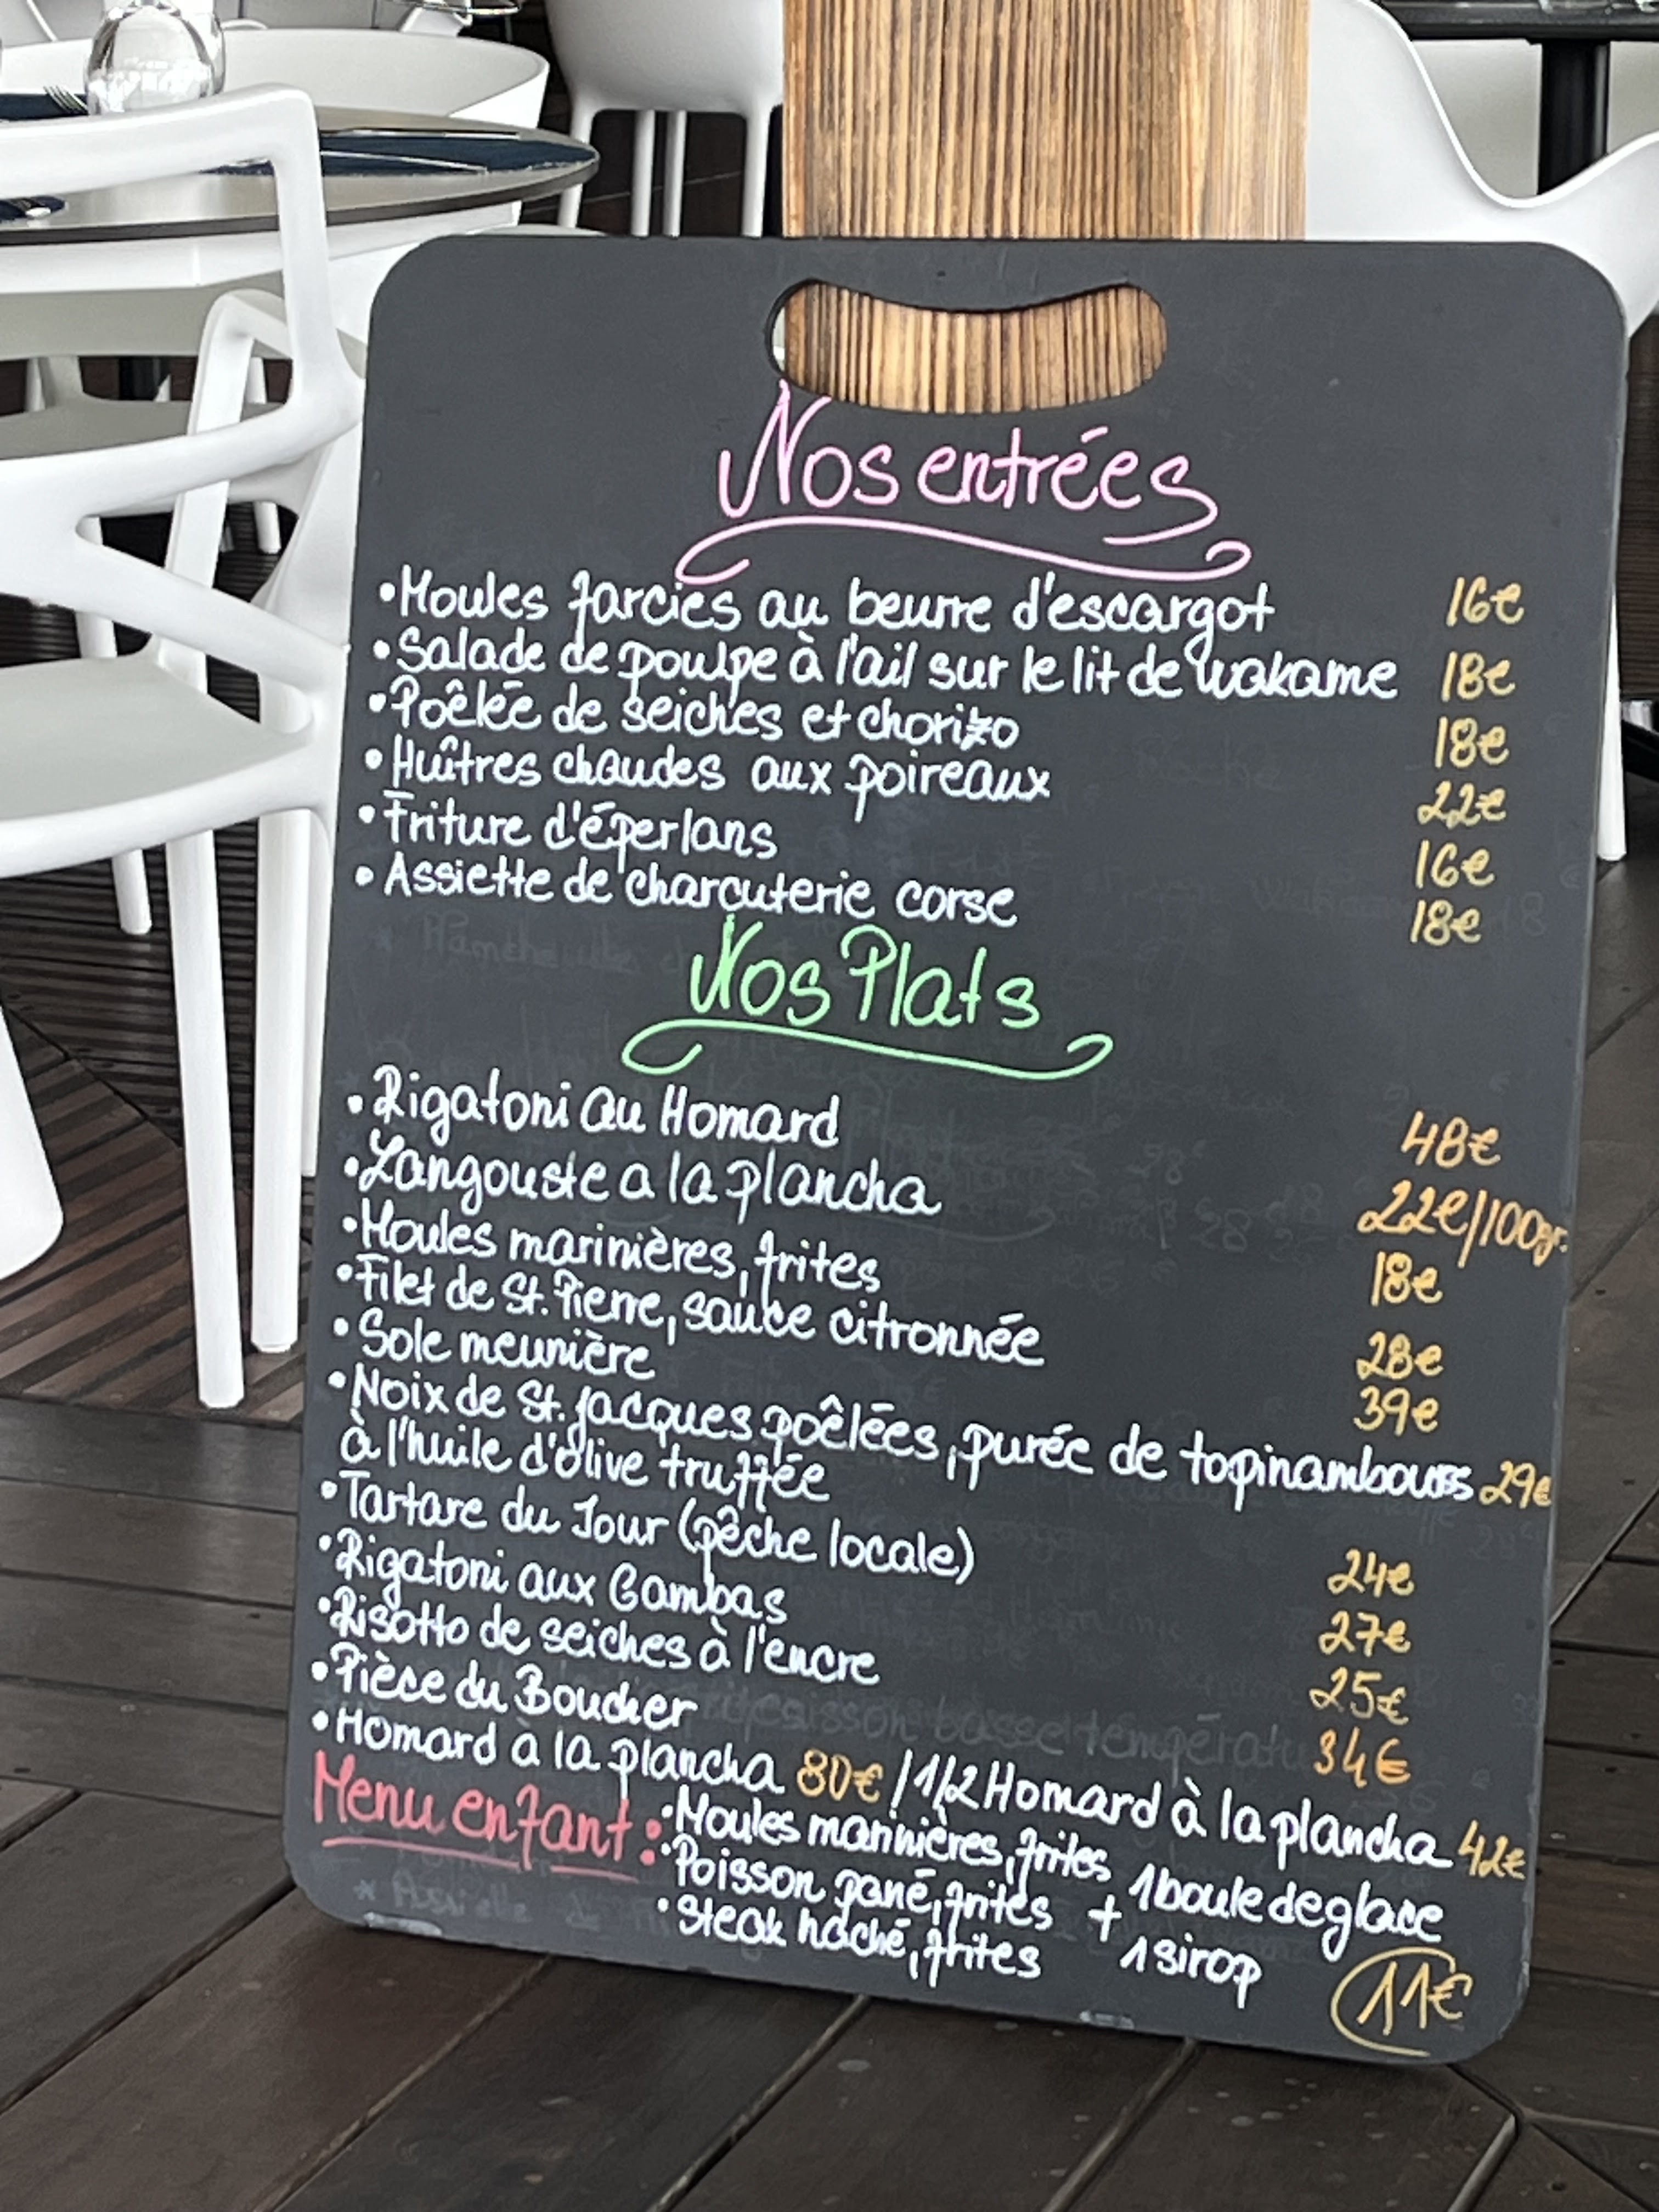 Nos entrées
• Moules farcies au beurre d'escargot 16€
• Salade de poulpe à l'ail sur le lit de wakame 18€
• Poêlée de seiches et chorizo 18€
• Huîtres chaudes aux poireaux 22€
• Friture d'éperlans 16€
• Assiette de charcuterie corse 18€
Nos Plats
• Rigatoni au Homard 48€
• Langouste a la plancha 22€/100gr.
• Moules marinières, frites 18€
• Filet de St. Pierre, sauce citronnée 28€
• Sole meunière 39€
• Noix de St. Jacques poêlées, purée de topinambours 29€
à l'huile d'olive truffée
• Tartare du Jour (pêche locale) 24€
• Rigatoni aux Gambas 27€
• Risotto de seiches à l'encre 25€
• Pièce du Boucher 34€
• Homard à la plancha 80€ / 1/2 Homard à la plancha 42€
Menu enfant : • Moules marinières, frites 1 boule de glace
• Poisson pané, frites + 1 sirop
• Steak haché, frites
11€